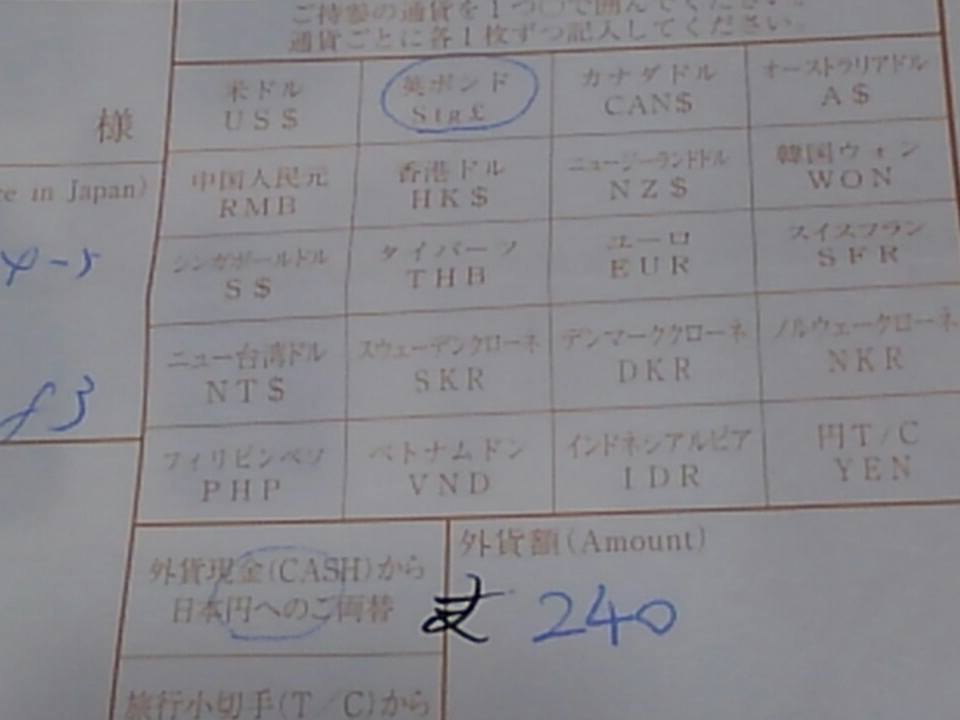 ご持参の通貨を1つ○で囲んでください。
通貨ごとに各1枚ずつ記入してください。
様
米ドル 英ポンド カナダドル オーストラリアドル
US$ Stg£ CAN$ A$
re in Japan)
中国人民元 香港ドル ニュージーランドドル 韓国ウォン
RMB HK$ NZ$ WON
シンガポールドル タイバーツ ユーロ スイスフラン
S$ THB EUR SFR
ニュー台湾ドル スウェーデンクローネ デンマーククローネ ノルウェークローネ
NT$ SKR DKR NKR
フィリピンペソ ベトナムドン インドネシアルピア 円T/C
PHP VND IDR YEN
外貨現金(CASH)から
日本円へのご両替
外貨額(Amount)
240
旅行小切手(T/C)から